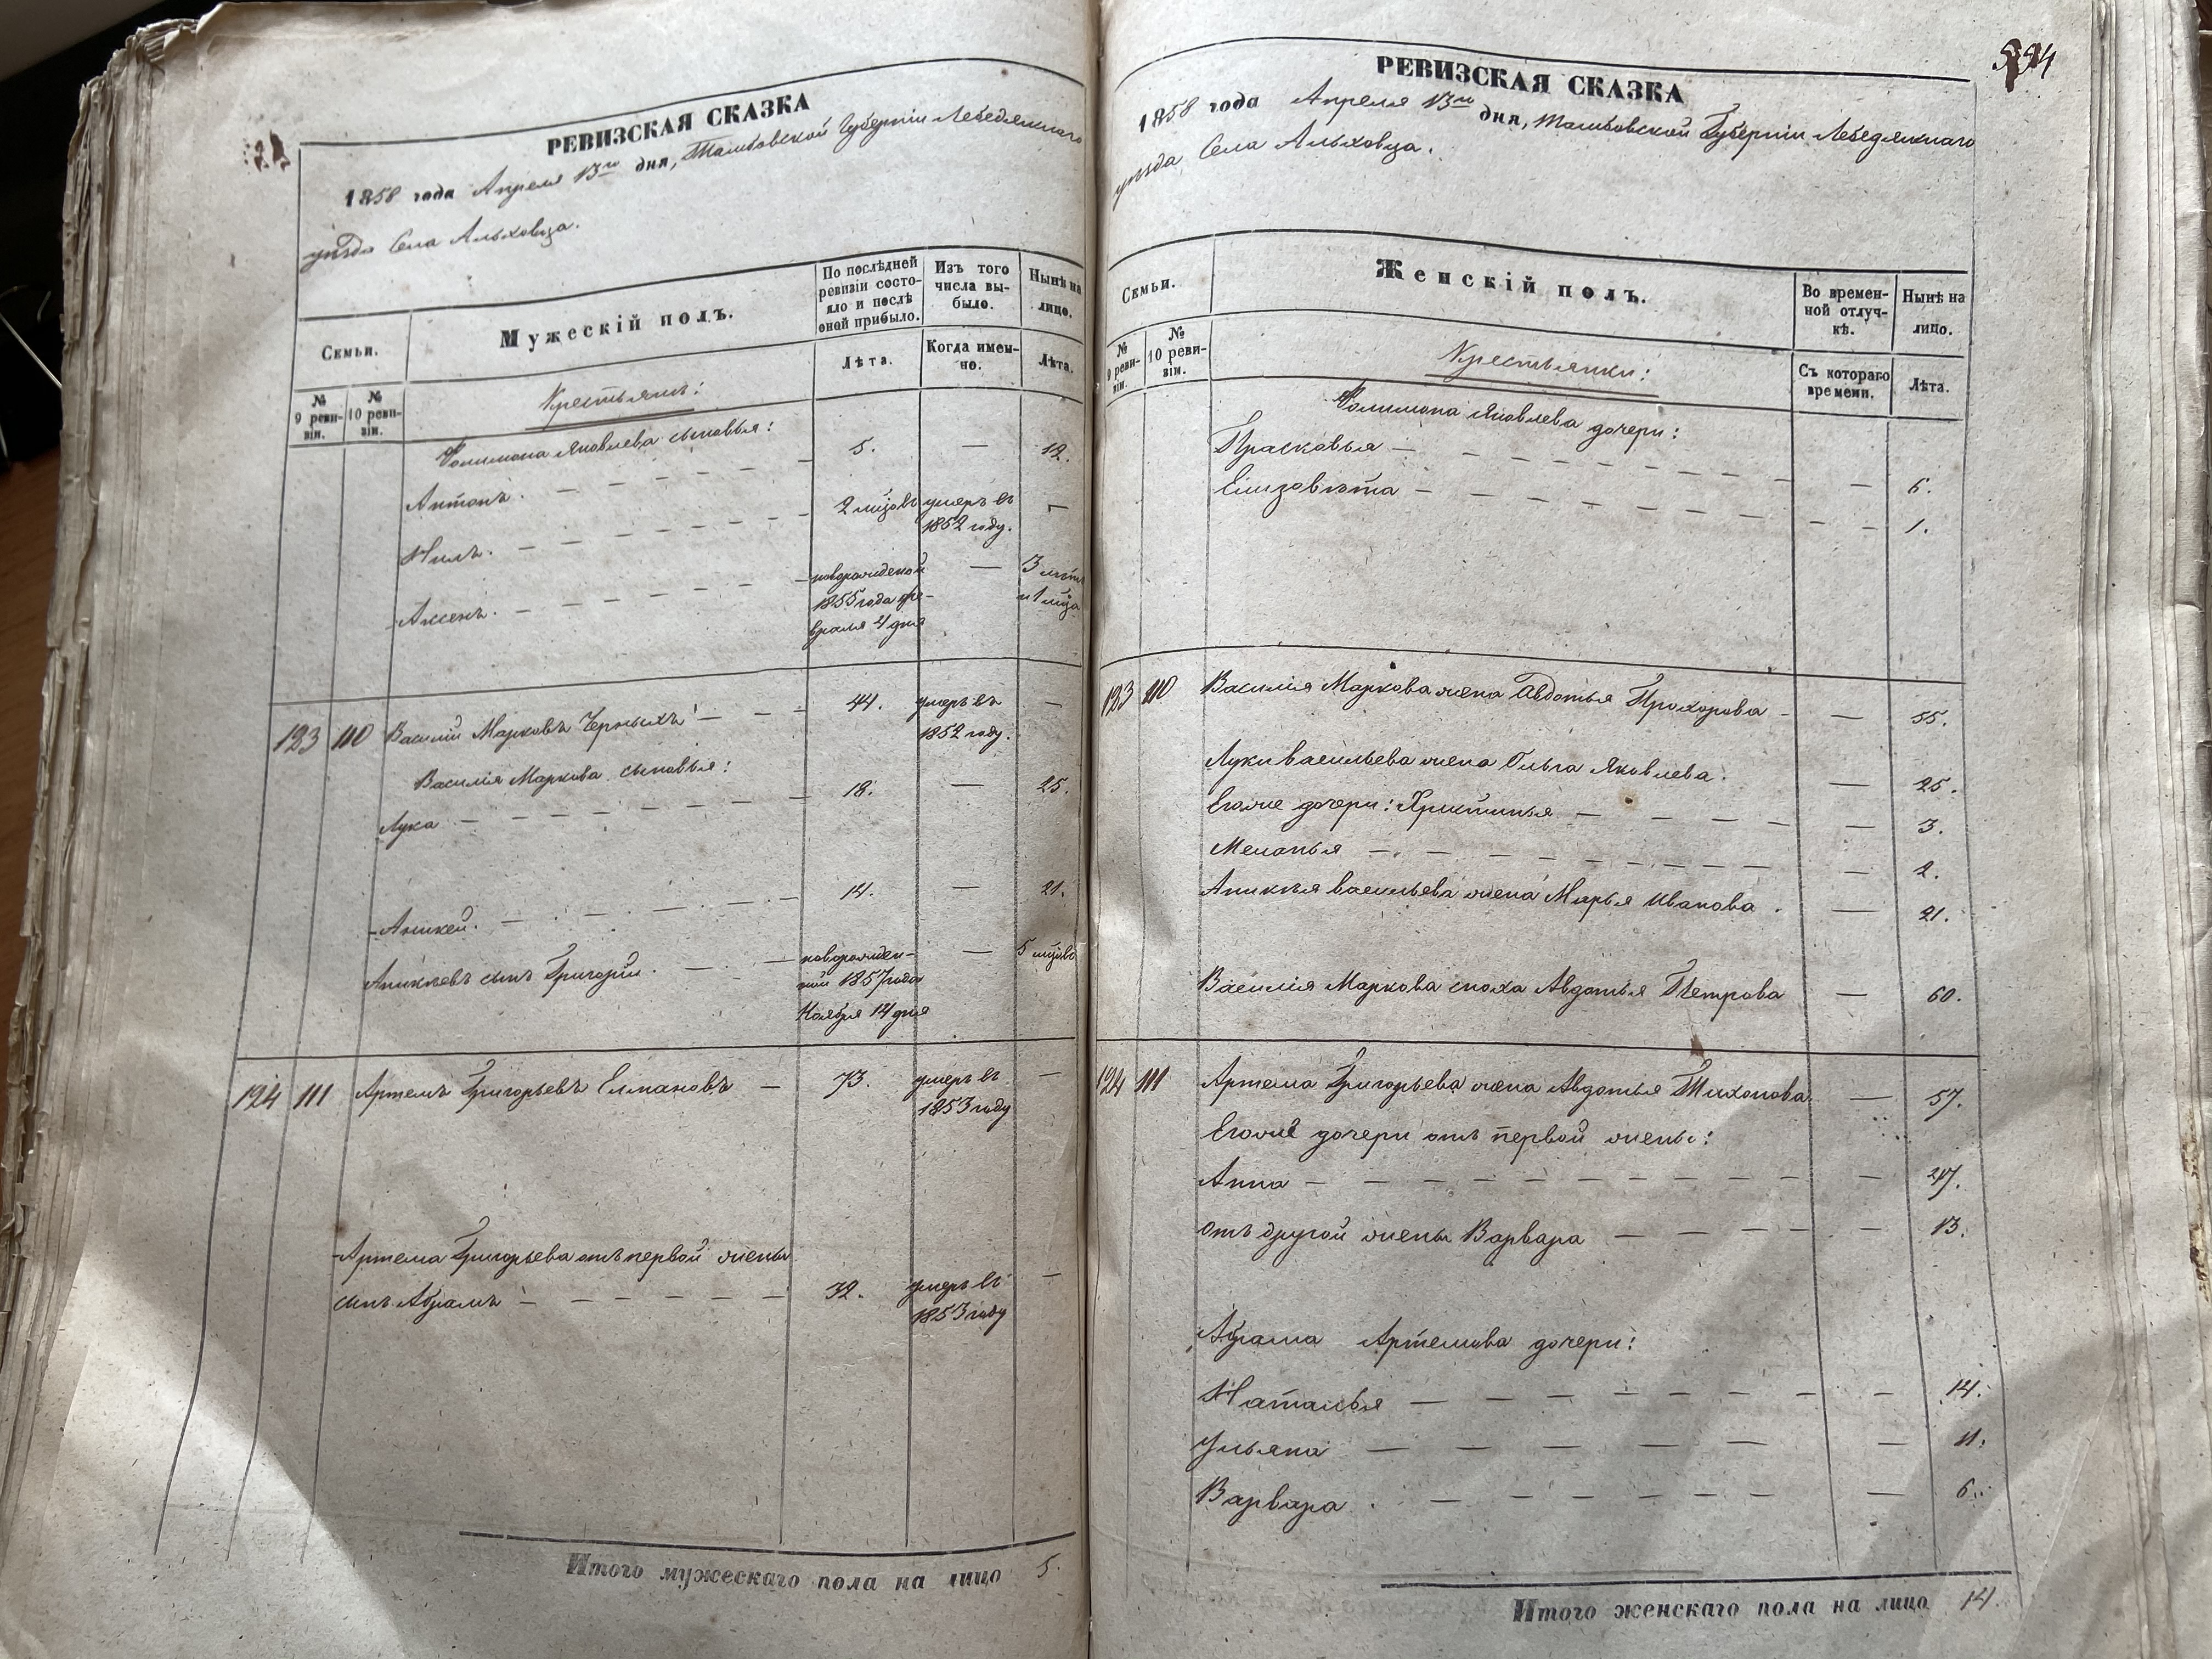 РЕВИЗСКАЯ СКАЗКА
1858 года Апреля 13го дня, Тамбовской Губерніи Лебедянскаго
уѣзда Села Альховца.
Семьи.
Мужескій полъ.
По послѣдней ревизіи состояло и послѣ оной прибыло.
Изъ того числа выбыло.
Нынѣ на лицо.
№ 9 ревизіи.
№ 10 ревизіи.
Лѣта.
Когда именно.
Лѣта.
Крестьяне:
Филимона Яковлева сыновья:
Антонъ. 5. — 12.
Нилъ. 2 мцовъ умеръ въ 1852 году. —
новорожденой 1855 года февраля 4 дня — 3 лѣтъ и 1 мца
123 110 Василій Марковъ Черныхъ 44. умеръ въ 1852 году. —
Василія Маркова сыновья:
Лука 18. — 25.
Аникей. 14. — 21.
Аникѣевъ сынъ Григорій. новорожденной 1857 года Ноября 14 дня — 5 мцовъ
124 111 Артемъ Григорьевъ Елмановъ — 73. умеръ въ 1853 году —
Артема Григорьева отъ первой жены
сынъ Абрамъ 32. умеръ въ 1853 году —
Итого мужескаго пола на лицо 5.
РЕВИЗСКАЯ СКАЗКА
1858 года Апреля 13го дня, Тамбовской Губерніи Лебедянскаго
уѣзда Села Альховца.
Семьи.
Женскій полъ.
Во временной отлучкѣ.
Нынѣ на лицо.
№ 9 ревизіи.
№ 10 ревизіи.
Съ котораго времени.
Лѣта.
Крестьянки:
Филимона Яковлева дочери:
Прасковья — 6.
Елизавѣта — 1.
123 110 Василія Маркова жена Авдотья Прохорова — 55.
Луки Васильева жена Ольга Яковлева. — 25.
Егоже дочери: Христинья — 3.
Меланья — 2.
Аникѣя Васильева жена Марья Иванова. — 21.
Василія Маркова сноха Авдотья Петрова — 60.
124 111 Артема Григорьева жена Авдотья Тихонова. — 57.
Егоже дочери отъ первой жены:
Анна — 27.
отъ другой жены Варвара — 13.
Абрама Артемова дочери:
Наталья — 14.
Ульяна — 11.
Варвара. — 6.
Итого женскаго пола на лицо 14.